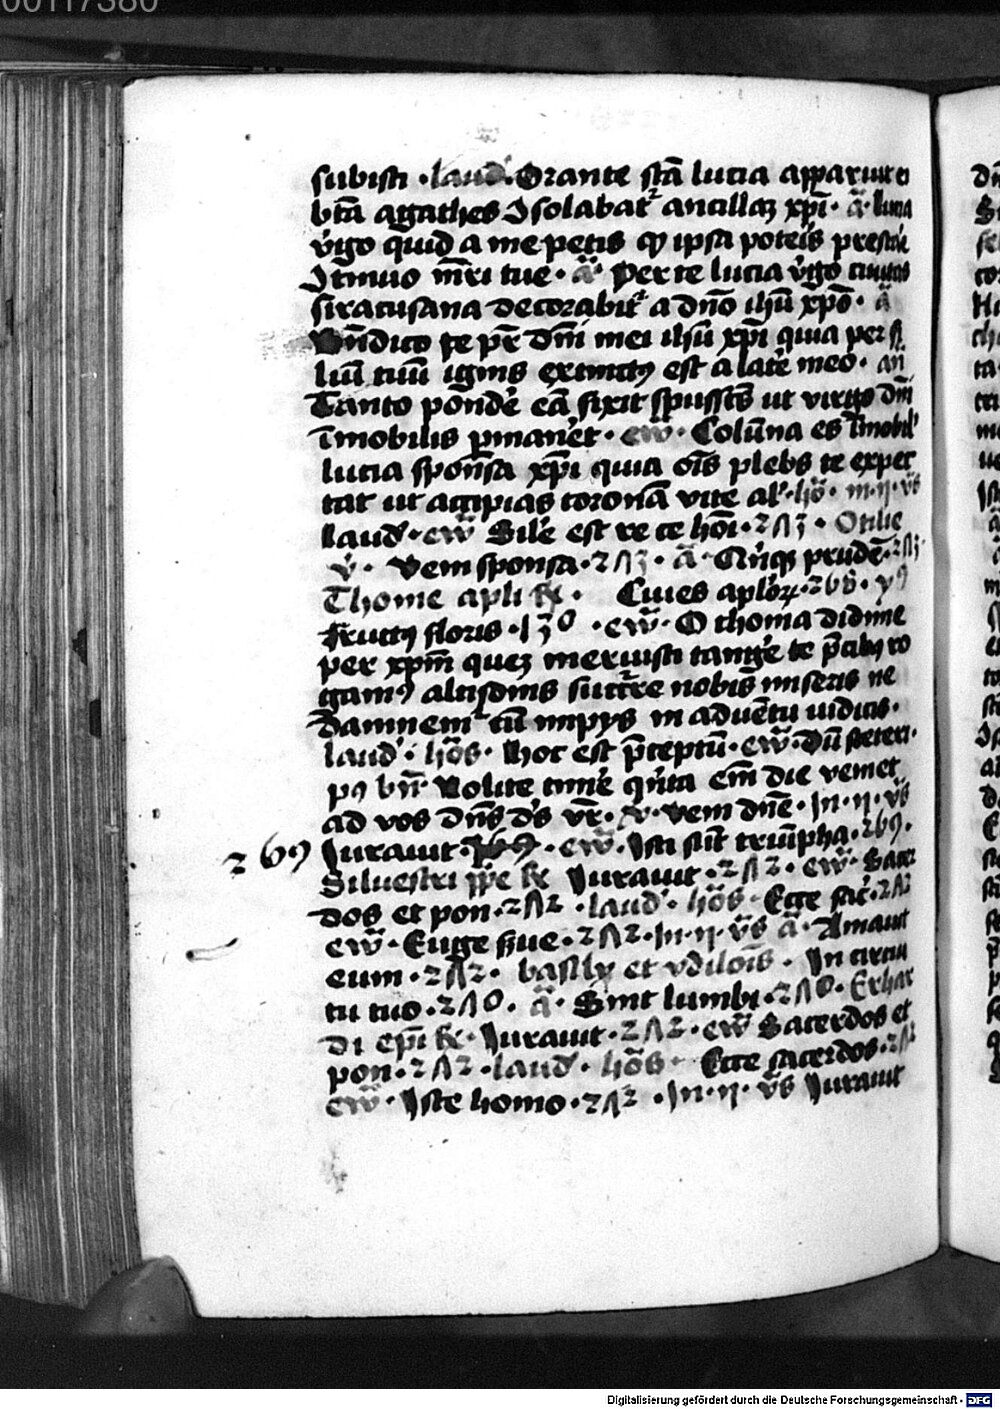 00117380
subisti · laud · Orante sc̄a lucia apparuit ei
btā agathes ꝯsolabat᷑ ancillaꝫ xp̄i · ā · lucia
v̓go quid a me petis qd ipsa poteīs prestare
ꝯtinuo m̄ri tue · ā · Per te lucia v̓go ciuitas
siracusana decorabit᷑ a dn̄o ihū xp̄o · ā
Bn̄dico te pr̄ dn̄i mei ihū xp̄i quia per fi
liū tuū ignis extinctꝰ est a late̓ meo · añ
Tanto ponde̓ eā fixit spūssc̄s ut virgo dn̄i
īmobilis ꝑmanet · ew̄ · Colūna es īmobil̓
lucia spōnsa xp̄i quia oīs plebs te expec
tat ut accipias coronā vite al̓l · hōs · in · ij · v̄s
laud · ew̄ Sile̓ est re ce hōi · 2Λ3 · Otilie
v̓ · Veni sponsa · 2Λ3 · ā · Qn̄qꝫ prudē · 2Λ3 ·
Thome apli ꝶ · Ciues aplōꝝ · 268 · yꝰ
Fructꝰ floris · 130 · ew̄ · O thoma didime
per xp̄m queꝫ meruisti tange̓ te p̄cibꝰ ro
gamꝰ altisonis succ̄re nobis miseris ne
damnem᷑ cū impijs in aduētu iudicis ·
laud · hōs · Hoc est p̄ceptū · ew̄ · Dū steteri ·
pꝰ bn̄ Nolite time̓ qn̄ta em̄ die veniet
ad vos dn̄s d̄s vr̄ · v̓ · Veni dn̄e · In · ij · v̄s
269 Jurauit · 169 · ew̄ · Isti sūt triūpha · 269 ·
Siluestri ꝑpe ꝶ Jurauit · 2Λ2 · ew̄ · Sacer
dos et pon · 2Λ2 · laud · hōs · Ecce sac̓ · 2Λ2
ew̄ · Euge s̄ue · 2Λ2 · In · ij · v̄s ā · Amauit
eum · 2Λ2 · basilij et vdilōis · In circui
tu tuo · 2Λ0 · ā · Sint lumbi · 2Λ0 · Erhar
di ep̄i ꝶ · Jurauit · 2Λ2 · ew̄ Sacerdos et
pon · 2Λ2 · laud · hōs · Ecce sacerdos · 2Λ2
ew̄ · Iste homo · 2Λ2 · In · ij · v̄s Jurauit
Digitalisierung gefördert durch die Deutsche Forschungsgemeinschaft - DFG